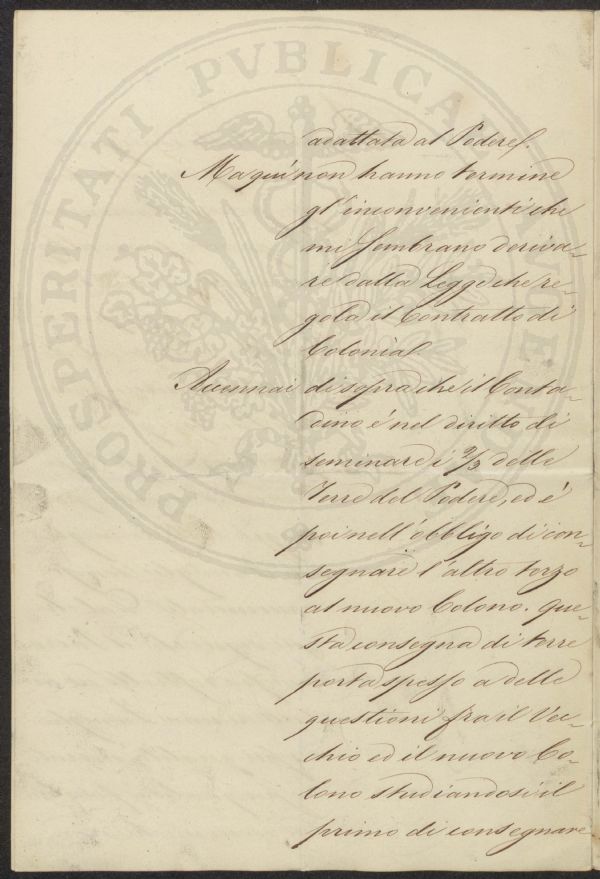 adattata al Podere.
Ma quì non hanno termine
gl'inconvenienti che
mi sembrano deriva-
re dalla Legge che re-
gola il Contratto di
Colonia.
Accennai di sopra che il Conta-
dino é nel diritto di
seminare i 2/3 delle
Terre del Podere, ed é
poi nell'obbligo di con-
segnare l'altro terzo
al nuovo Colono. Que-
sta consegna di terre
porta spesso a delle
questioni fra il Vec-
chio ed il nuovo Co-
lono studiandosi il
primo di consegnare
PROSPERITATI PVBLICAE